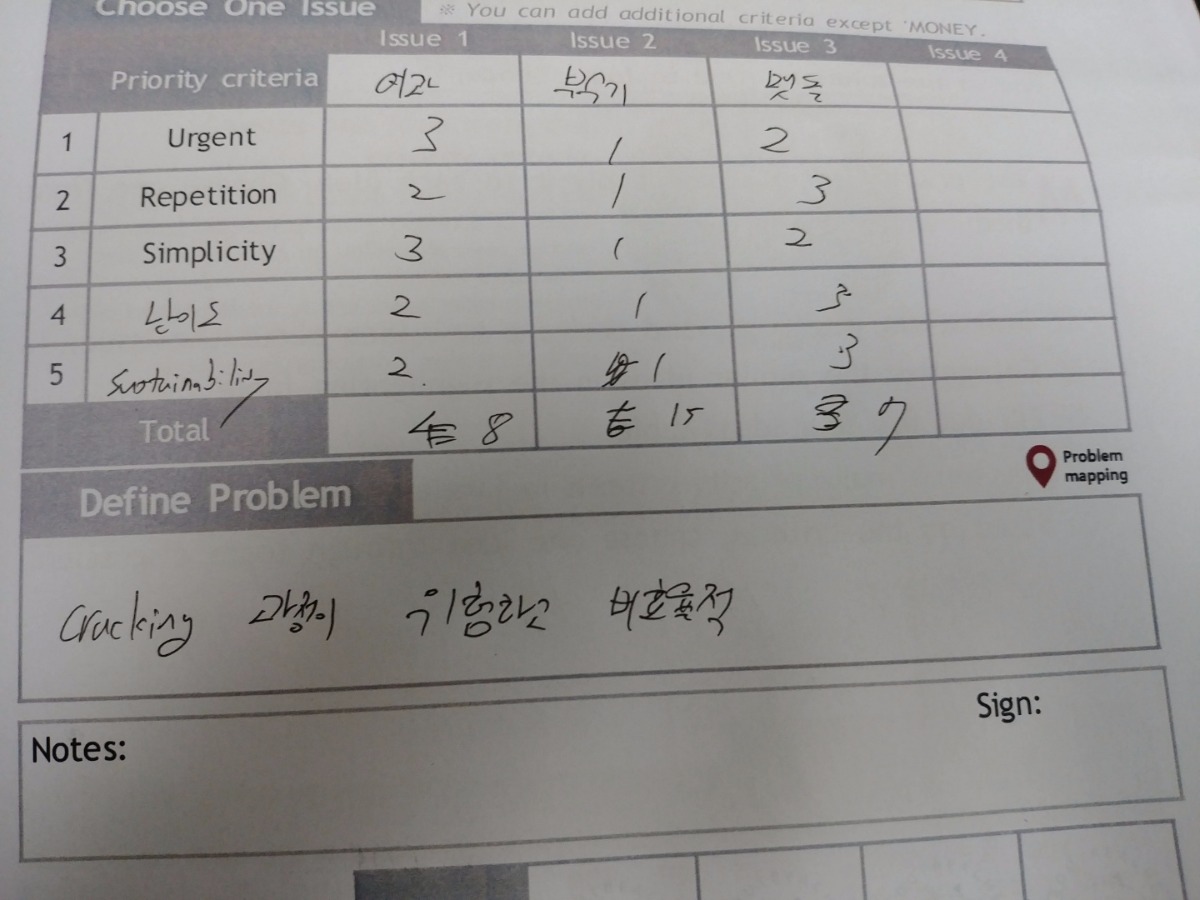 Choose One Issue
※ You can add additional criteria except 'MONEY.
Issue 1 Issue 2 Issue 3 Issue 4
Priority criteria 여과 부수기 맷돌
1 Urgent 3 1 2
2 Repetition 2 1 3
3 Simplicity 3 1 2
4 난이도 2 1 3
5 Sustainability 2. 1 3
Total 8 15 7
Problem
mapping
Define Problem
Cracking 과정이 위험하고 비효율적
Sign:
Notes: